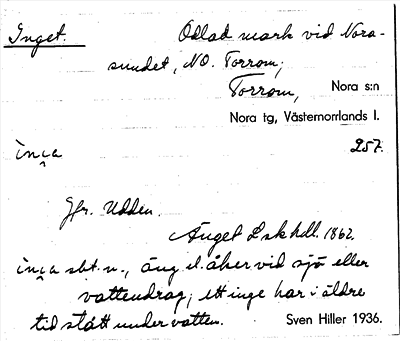 Inget.
Odlad mark vid Nora-
sundet, NO. Torrom;
Torrom, Nora s:n
Nora tg, Västernorrlands l.
257.
Jfr. Udden.
Änget Lskhdl. 1862.
sbt. n., äng el. åker vid sjö eller
vattendrag; ett inge har i äldre
tid stått under vatten. Sven Hiller 1936.